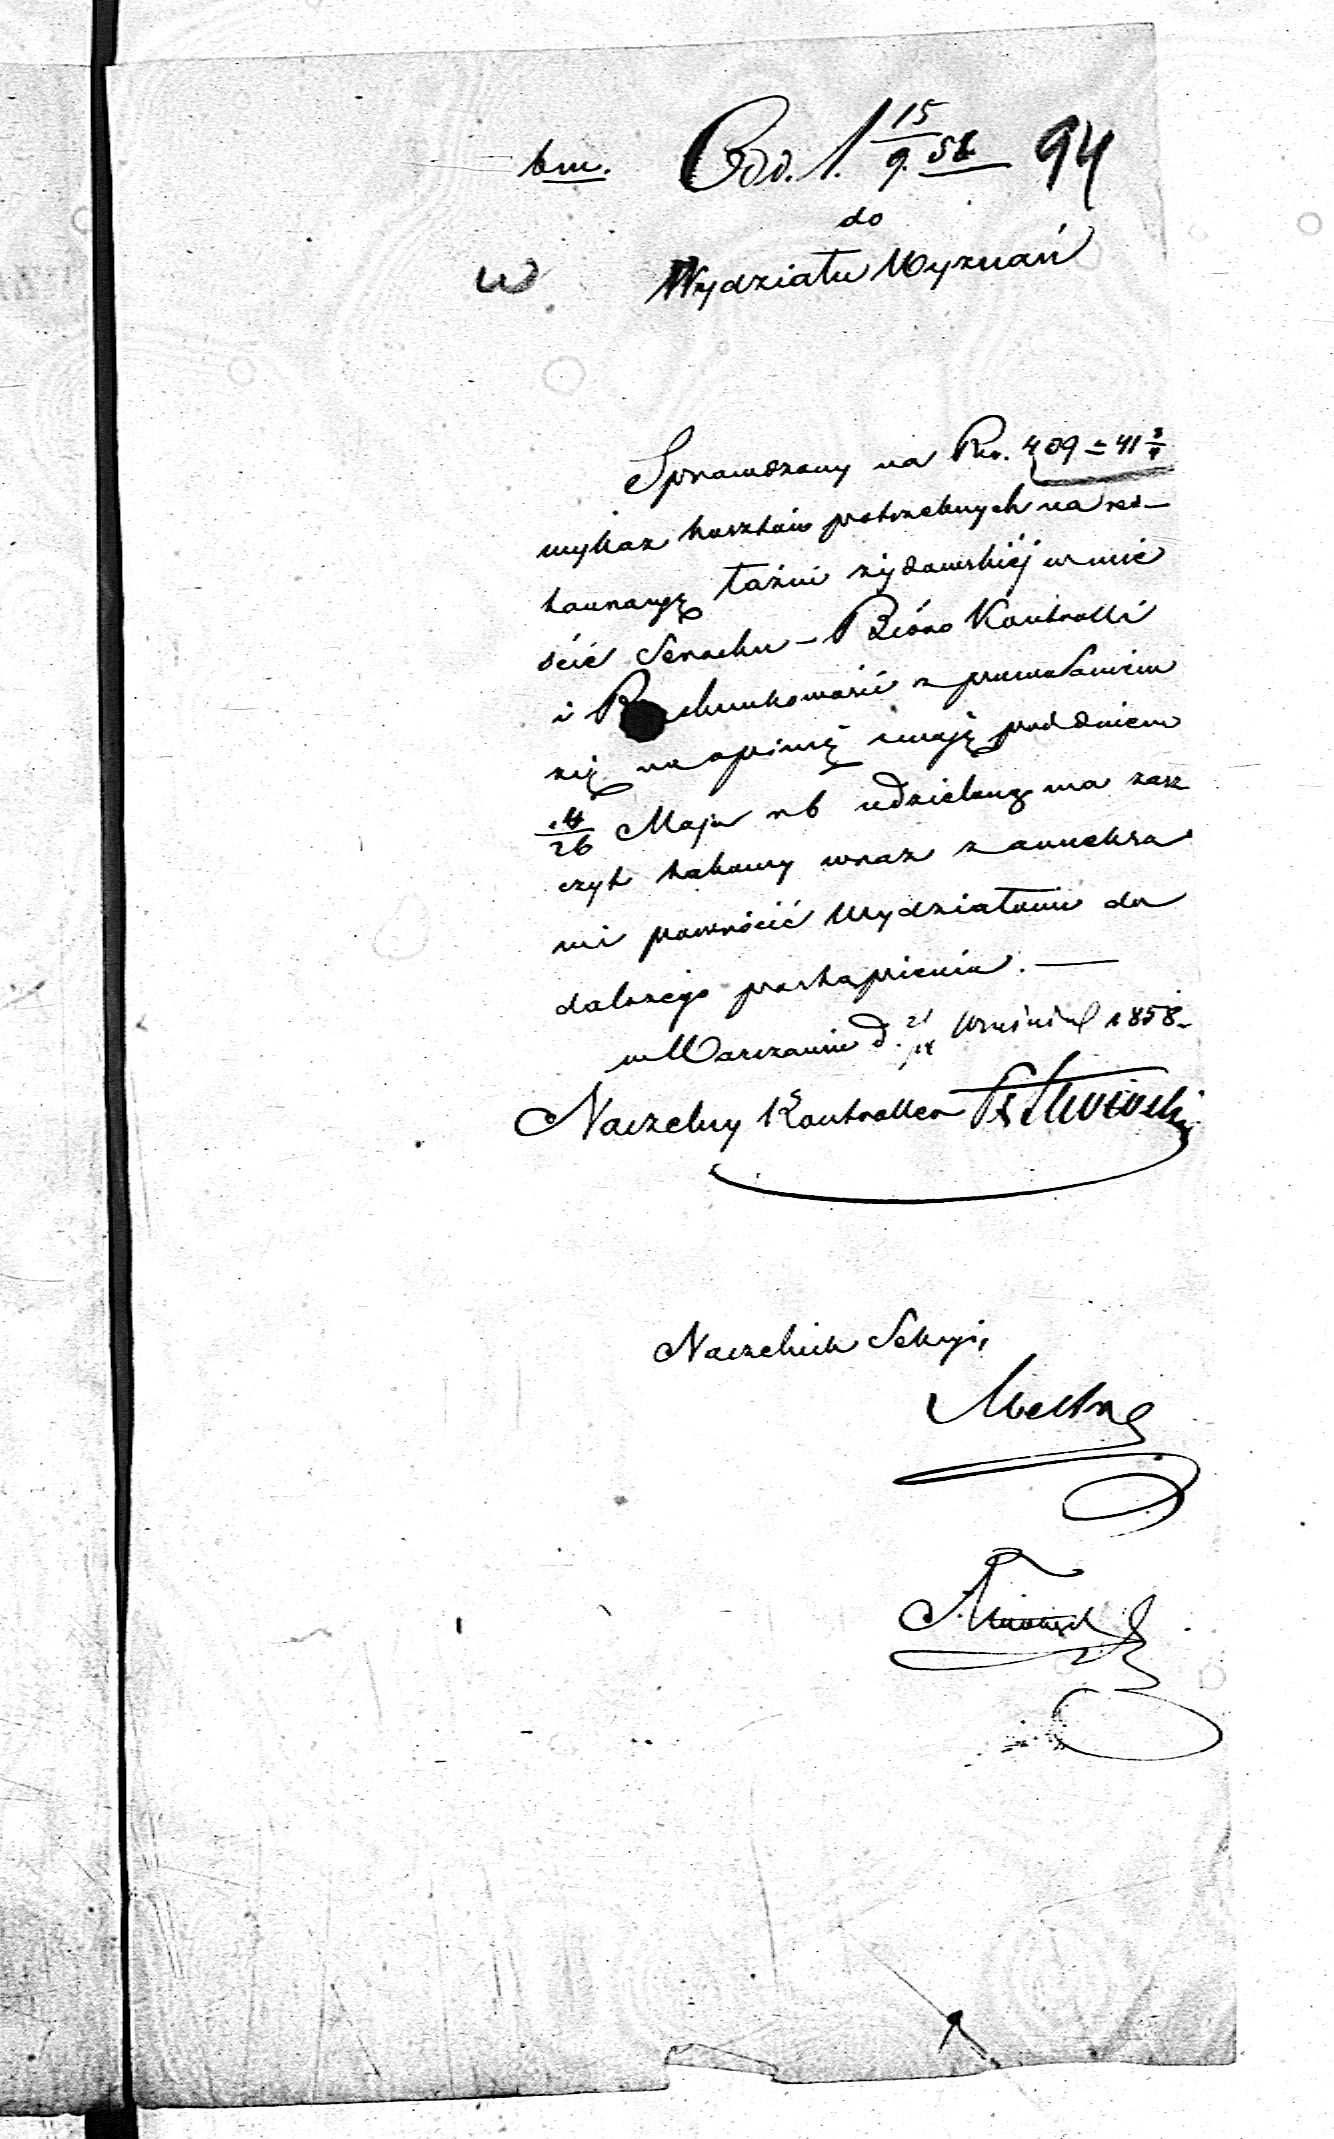 bm. Odd. 1. 15/9. 58. 94
do
W Wydziału Wyznań
Sprawdzony na Rs. 409 = 41 3/4
wykaz kosztów potrzebnych na re-
stauracyę łaźni żydowskiéj w mie
ście Serocku - Bióro Kontrolli
i Rachunkowości z powołaniem
się na opinię swoję pod dniem
14/26 Maja rb udzieloną ma zasz
czyt takowy wraz z annexa
mi powrócić Wydziałowi do
dalszego postąpienia. —
w Warszawie d. Września 1858.
Naczelny Kontroller
Naczelnik Sekcyi,